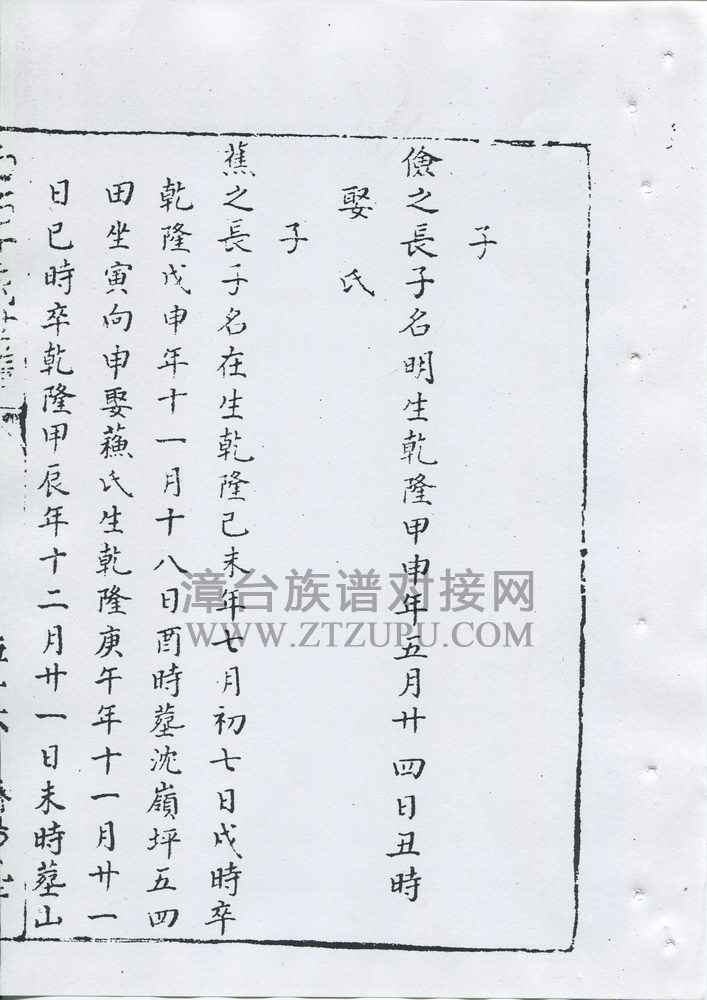 子
儉之長子名明生乾隆甲申年五月廿四日丑時
娶氏
子
蕉之長子名在生乾隆己未年七月初七日戌時卒
乾隆戊申年十一月十八日酉時墓沈嶺坪五四
田坐寅向申娶蘓氏生乾隆庚午年十一月廿一
日巳時卒乾隆甲辰年十二月廿一日未時墓山
漳台族谱对接网
WWW.ZTZUPU.COM